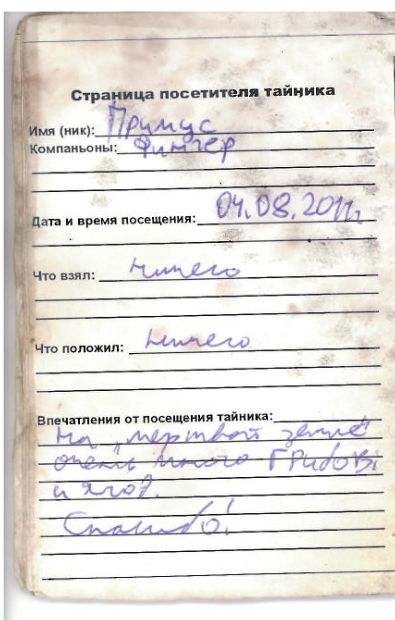 Страница посетителя тайника
Имя (ник): Примус
Компаньоны: Фингер
Дата и время посещения: 04.08.2011г
Что взял: ничего
Что положил: ничего
Впечатления от посещения тайника:
На „мертвой земле"
очень много грибов
и ягод.
Спасибо!